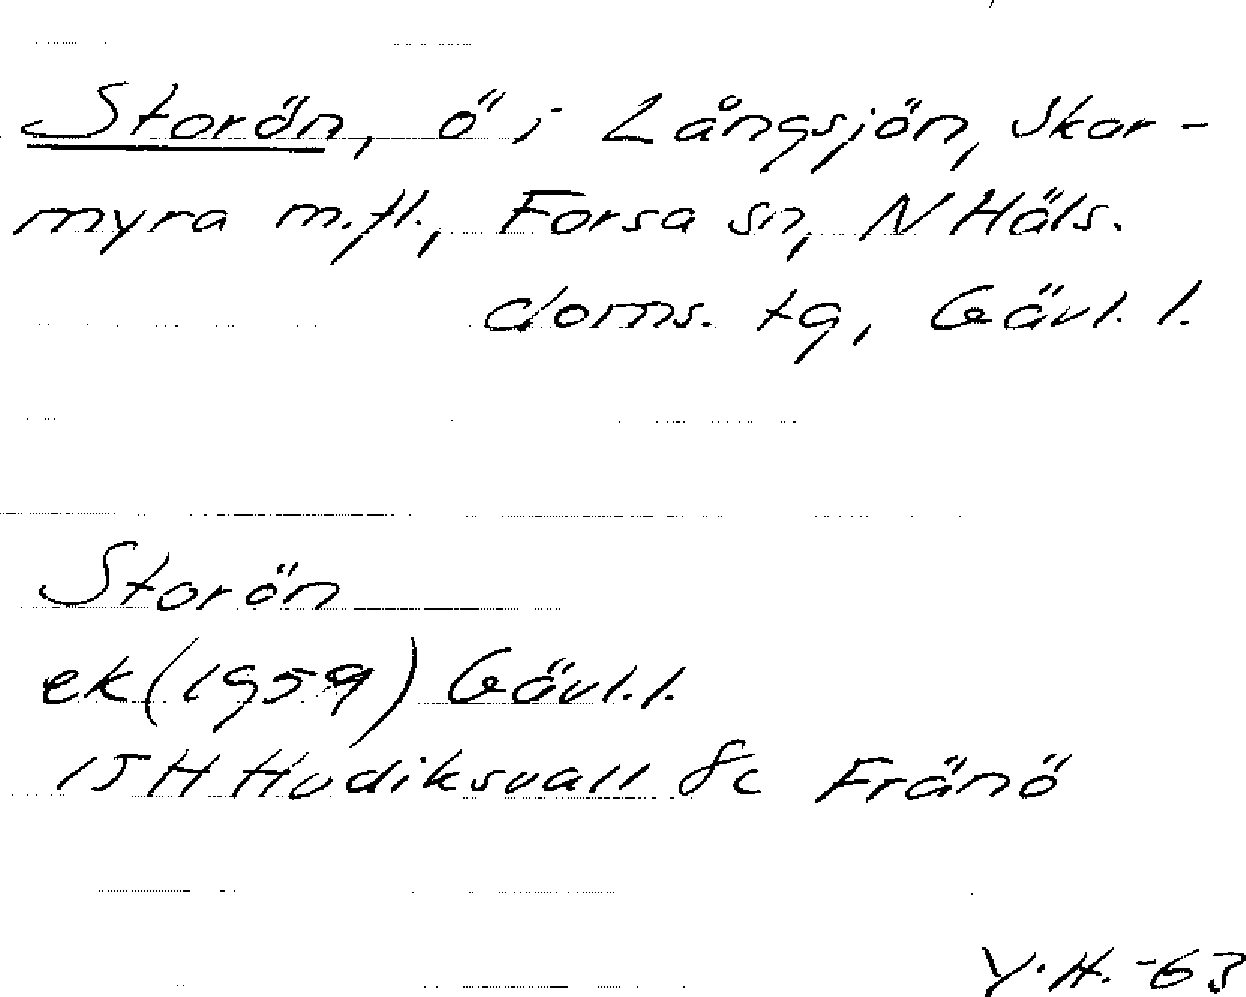 Storön, ö i Långsjön, Skar-
myra m.fl., Forsa sn, N Häls.
doms. tg, Gävl. l.
Storön
ek (1959) Gävl. l.
15H Hudiksvall 8c Fränö
Y.H. -63